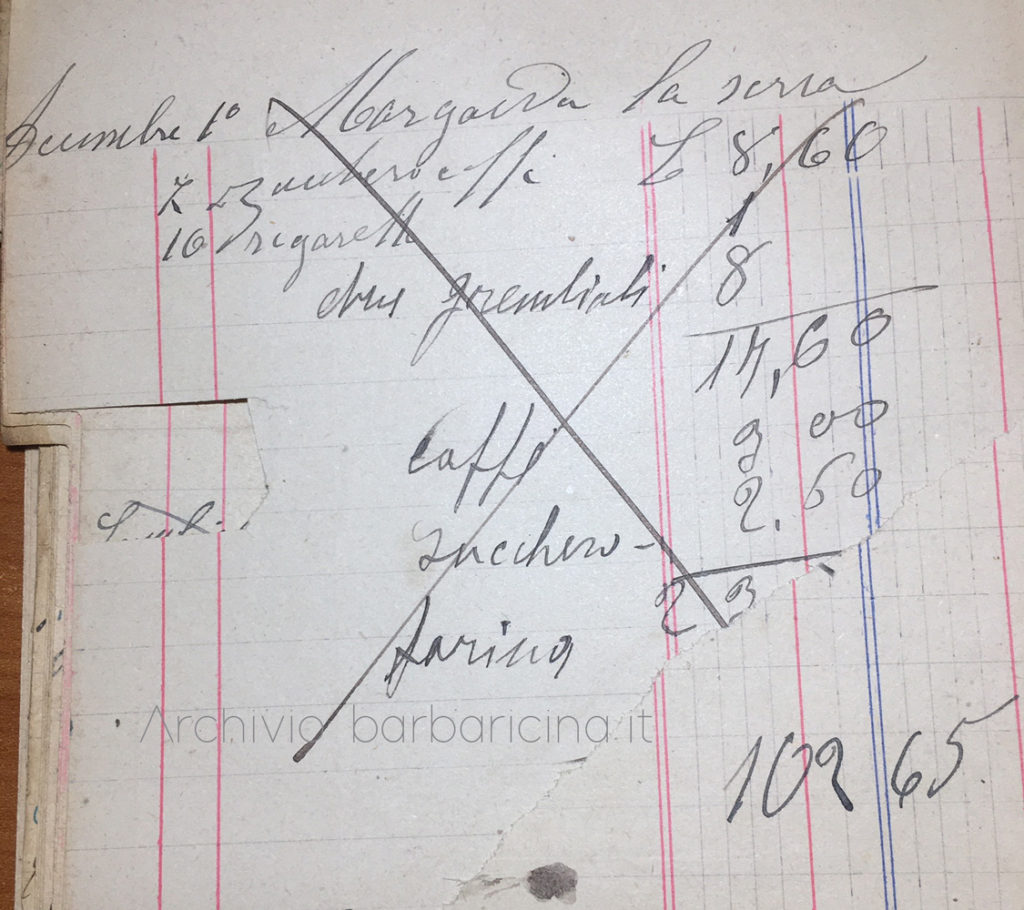 Margarida la serra
Decembre 1°
zucchero caffè L 8,60
10 sigarette 1
due grembiali 8
17,60
caffè 3 00
2.60
zucchero -
23
farina
Archivio barbaricina.it
102 65